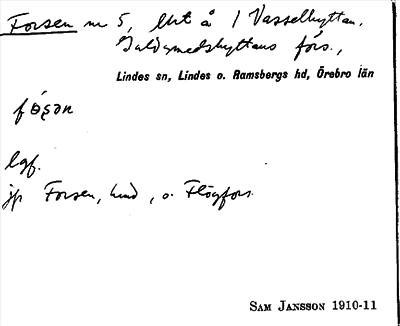 Forsen nr 5, lht å 1 Vasselhyttan,
Guldsmedshyttans förs.,
Lindes sn, Lindes o. Ramsbergs hd, Örebro län
lgf.
jfr Forsen, hmd, o. Flögfors.
SAM JANSSON 1910-11